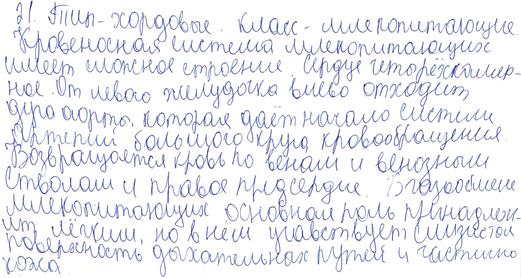 21. Тип - хордовые. Класс - млекопитающие.
Кровеносная система млекопитающих
имеет сложное строение. Сердце четырёхкамер-
ное. От левого желудочка влево отходит
дуга аорты, которая даёт начало системе
Артерий большого круга кровообращения.
Возвращается кровь по венам и венозным
стволам и правое предсердие. В газообмене
млекопитающих основная роль принадлеж-
ит лёгким, но в нем учавствует слизистая
поверхность дыхательных путей и частично
кожа.